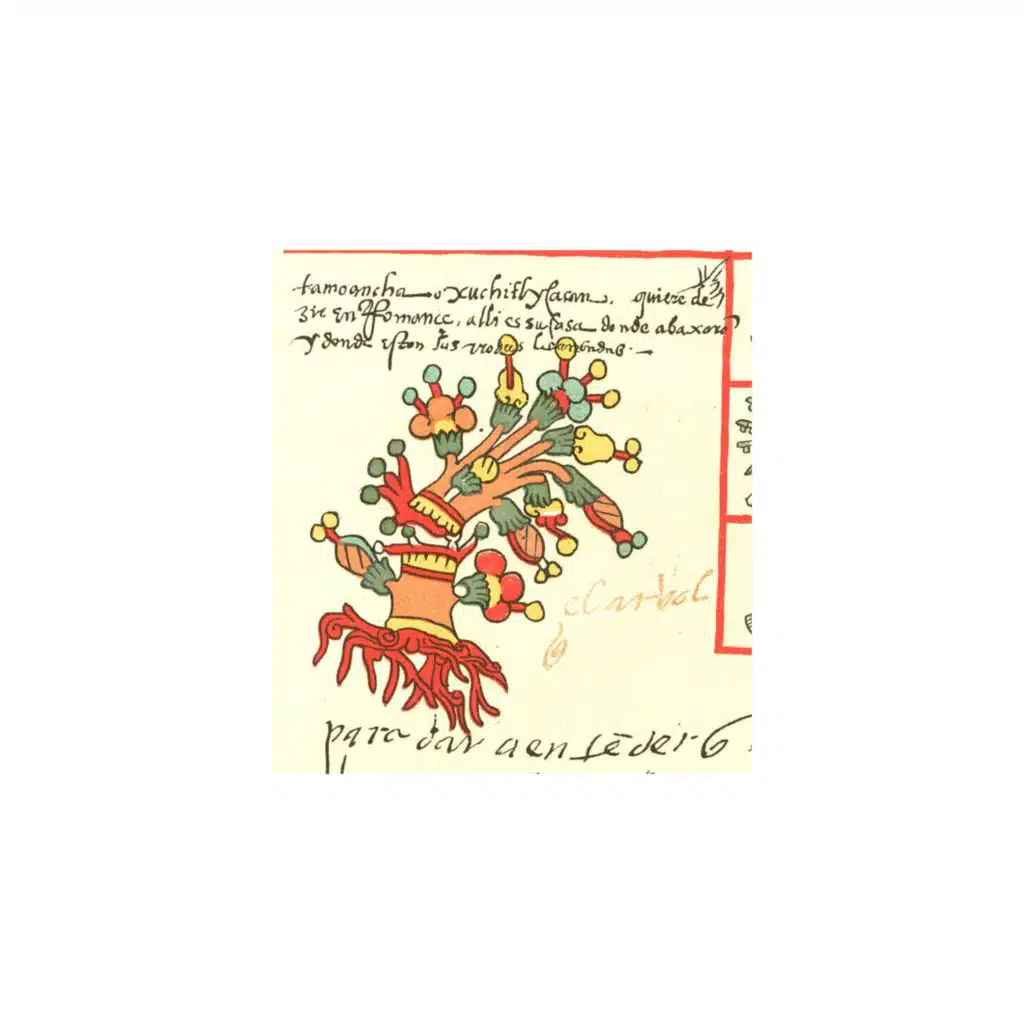 tamoancha o xuchitlycacan. quiere de
zir en Romance. alli es su casa donde abaxaro
y donde estan sus
el arbol
para dar a entēder